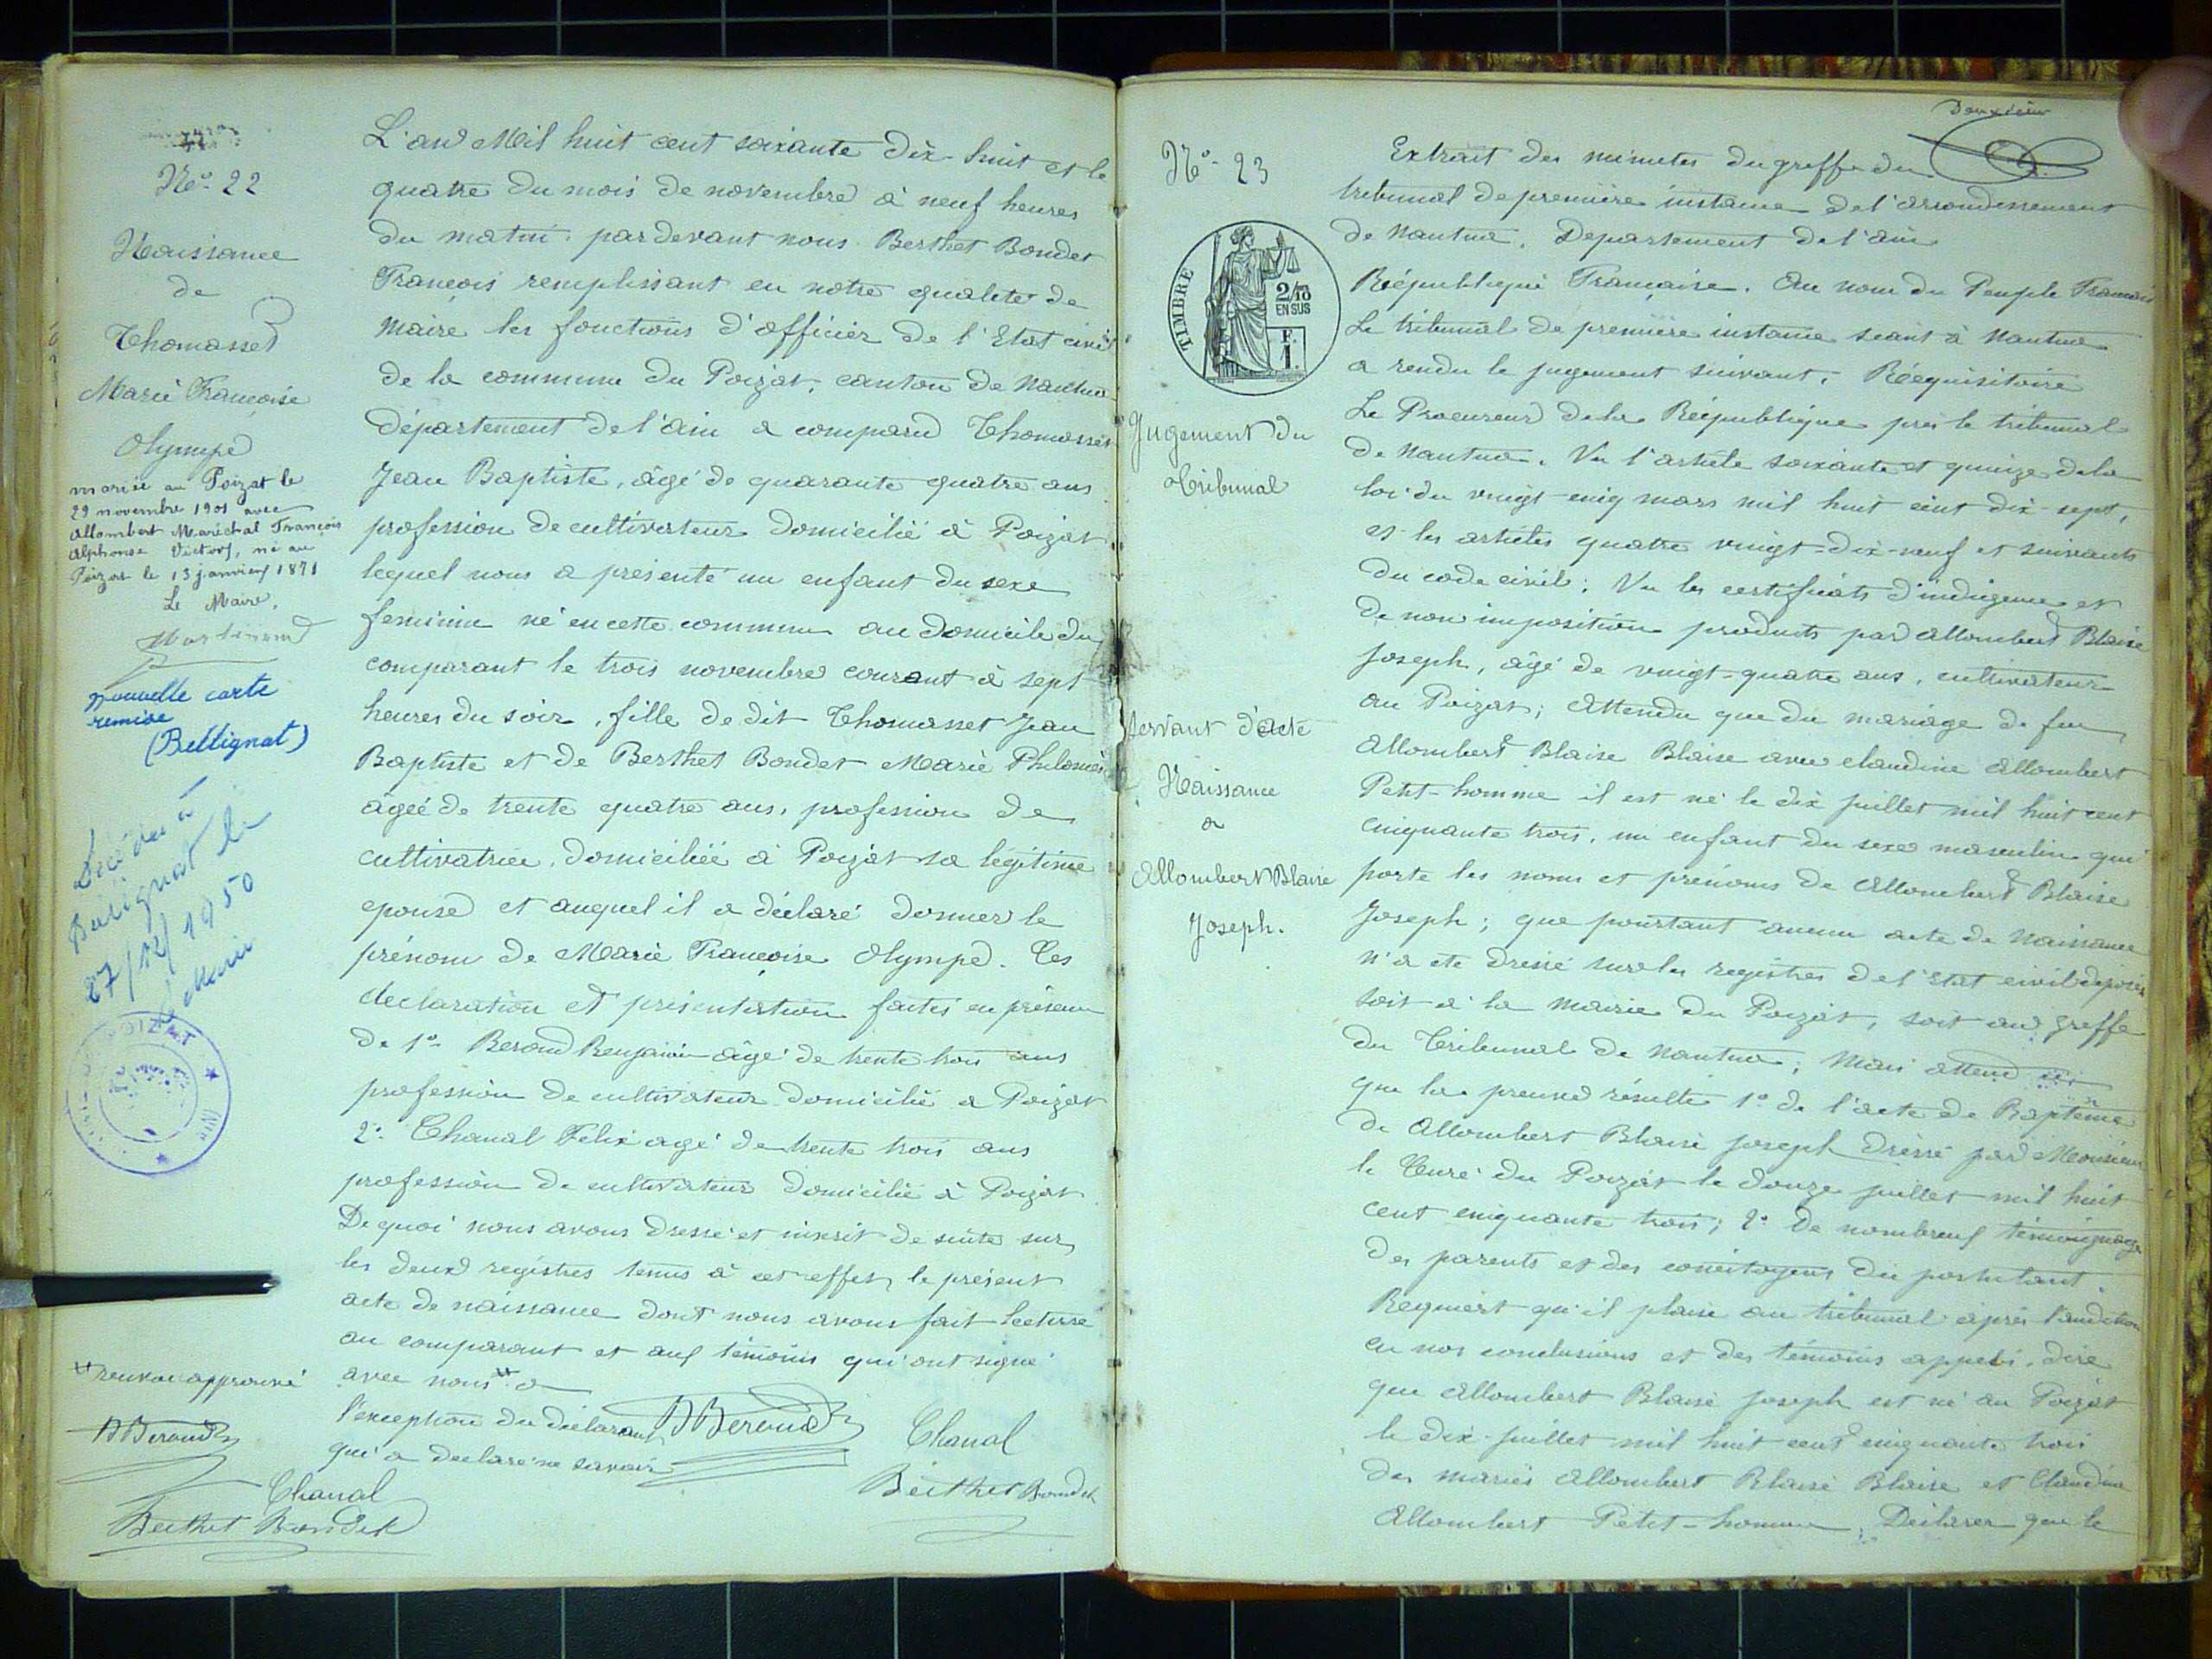 N° 22
Naissance
de
Thomasset
Marie Françoise
Olympe
mariée au Poizat le
29 novembre 1901 avec
Allombert Maréchal François
Alphonse Victor, né au
Poizat le 13 janvier 1871
Le Maire,
nouvelle carte
remise
(Bellignat)
Décédée à
Bellignat le
27/12/1950
Le Maire
L'an Mil huit cent soixante dix-huit et le
quatre du mois de novembre à neuf heures
du matin. pardevant nous Berthet Bondet
François remplissant en notre qualité de
Maire les fonctions d'officier de l'Etat civil
de la commune du Poizat, canton de Nantua
département de l'ain a comparu Thomasset
Jean Baptiste, âgé de quarante quatre ans
profession de cultivateur domicilié à Poizat
lequel nous a présenté un enfant du sexe
feminin né en cette commune au domicile du
comparant le trois novembre courant à sept
heures du soir, fille de dit Thomasset Jean
Baptiste et de Berthet Bondet Marie Philomè
âgée de trente quatre ans, profession de
cultivatrice, domiciliée à Poizat sa légitime
epouse et auquel il a déclaré donner le
prénom de Marie Françoise Olympe. Ces
declaration et présentation faites en présence
de 1° Beroud Benjamin âgé de trente trois ans
profession de cultivateur domicilié a Poizat
2° Chanal Felix agé de trente trois ans
profession de cultivateur domicilié à Poizat
De quoi nous avons dressé et inscrit de suite sur
les deux registres tenus à cet effet, le présent
acte de naissance dont nous avons fait lecture
au comparant et aux témoins qui ont signé
avec nous a
l'exception du déclarant
qui a declaré ne savoir
B Beroud
Chanal
Berthet Bondet
renvoi approuvé
B Beroud
Chanal
Berthet Bondet
N° 23
TIMBRE
2/10
EN SUS
F.
1.
Jugement du
Tribunal
servant d'acte
Naissance
a
Allombert Blaise
Joseph.
Extrait des minutes du greffe du
tribunal de première instance de l'arrondissement
de Nantua. Departement de l'ain
République Française. Au nom du Peuple Français
Le tribunal de première instance seant à Nantua
a rendu le jugement suivant. Réquisitoire
Le Procureur de la République près le tribunal
de Nantua. Vu l'article soixante et quinze de la
loi du vingt cinq mars mil huit cent dix-sept,
et les articles quatre vingt-dix-neuf et suivants
du code civil; Vu les certificats d'indigence et
de non imposition produits par Allombert Blaise
Joseph, âgé de vingt-quatre ans, cultivateur
au Poizat; Attendu que du mariage de feu
Allombert Blaise Blaise avec claudine Allombert
Petit-homme il est né le dix juillet mil huit cent
cinquante trois, un enfant du sexe masculin qui
porte les noms et prénoms de Allombert Blaise
Joseph; que pourtant aucun acte de naissance
n'a ete dressé sur les registres de l'Etat civil déposés
soit à la Mairie du Poizat, soit au greffe
du Tribunal de Nantua; Mais attend
que la preuve résulte 1° de l'acte de Baptême
de Allombert Blaise Joseph dressé par Monsieur
le Curé du Poizat le douze juillet mil huit
cent cinquante trois; 2° de nombreux témoignages
des parents et des concitoyens du postulant.
Requiert qu'il plaise au tribunal après l'audition
en nos conclusions et des témoins appelés, dire
que Allombert Blaise Joseph est né au Poizat
le dix-juillet mil huit cent cinquante trois
des mariés Allombert Blaise Blaise et Claudine
Allombert Petit-homme; Déclarer que le